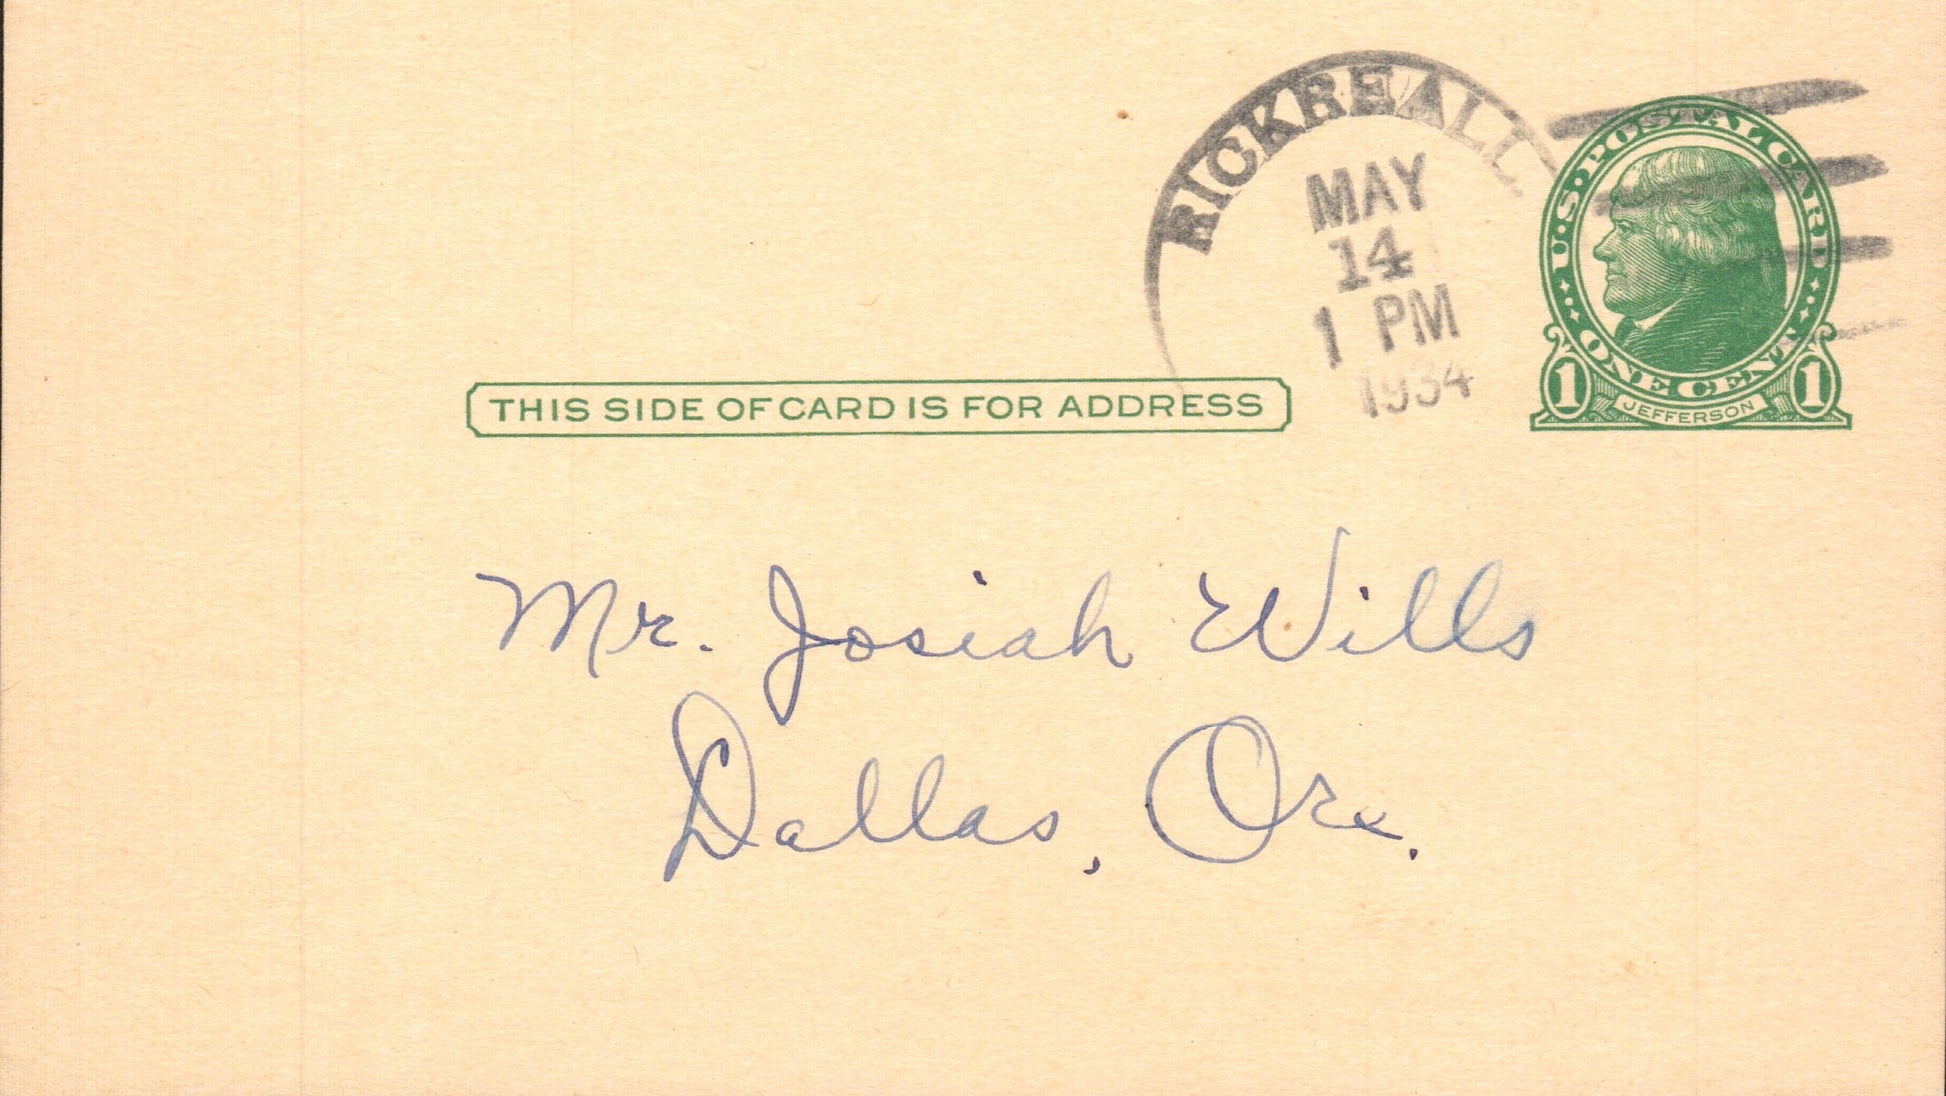 RICKREALL
MAY
14
1 PM
1934
U·S·POSTAL CARD
ONE CENT
1 JEFFERSON 1
THIS SIDE OF CARD IS FOR ADDRESS
Mr. Josiah Wills
Dallas, Ore.